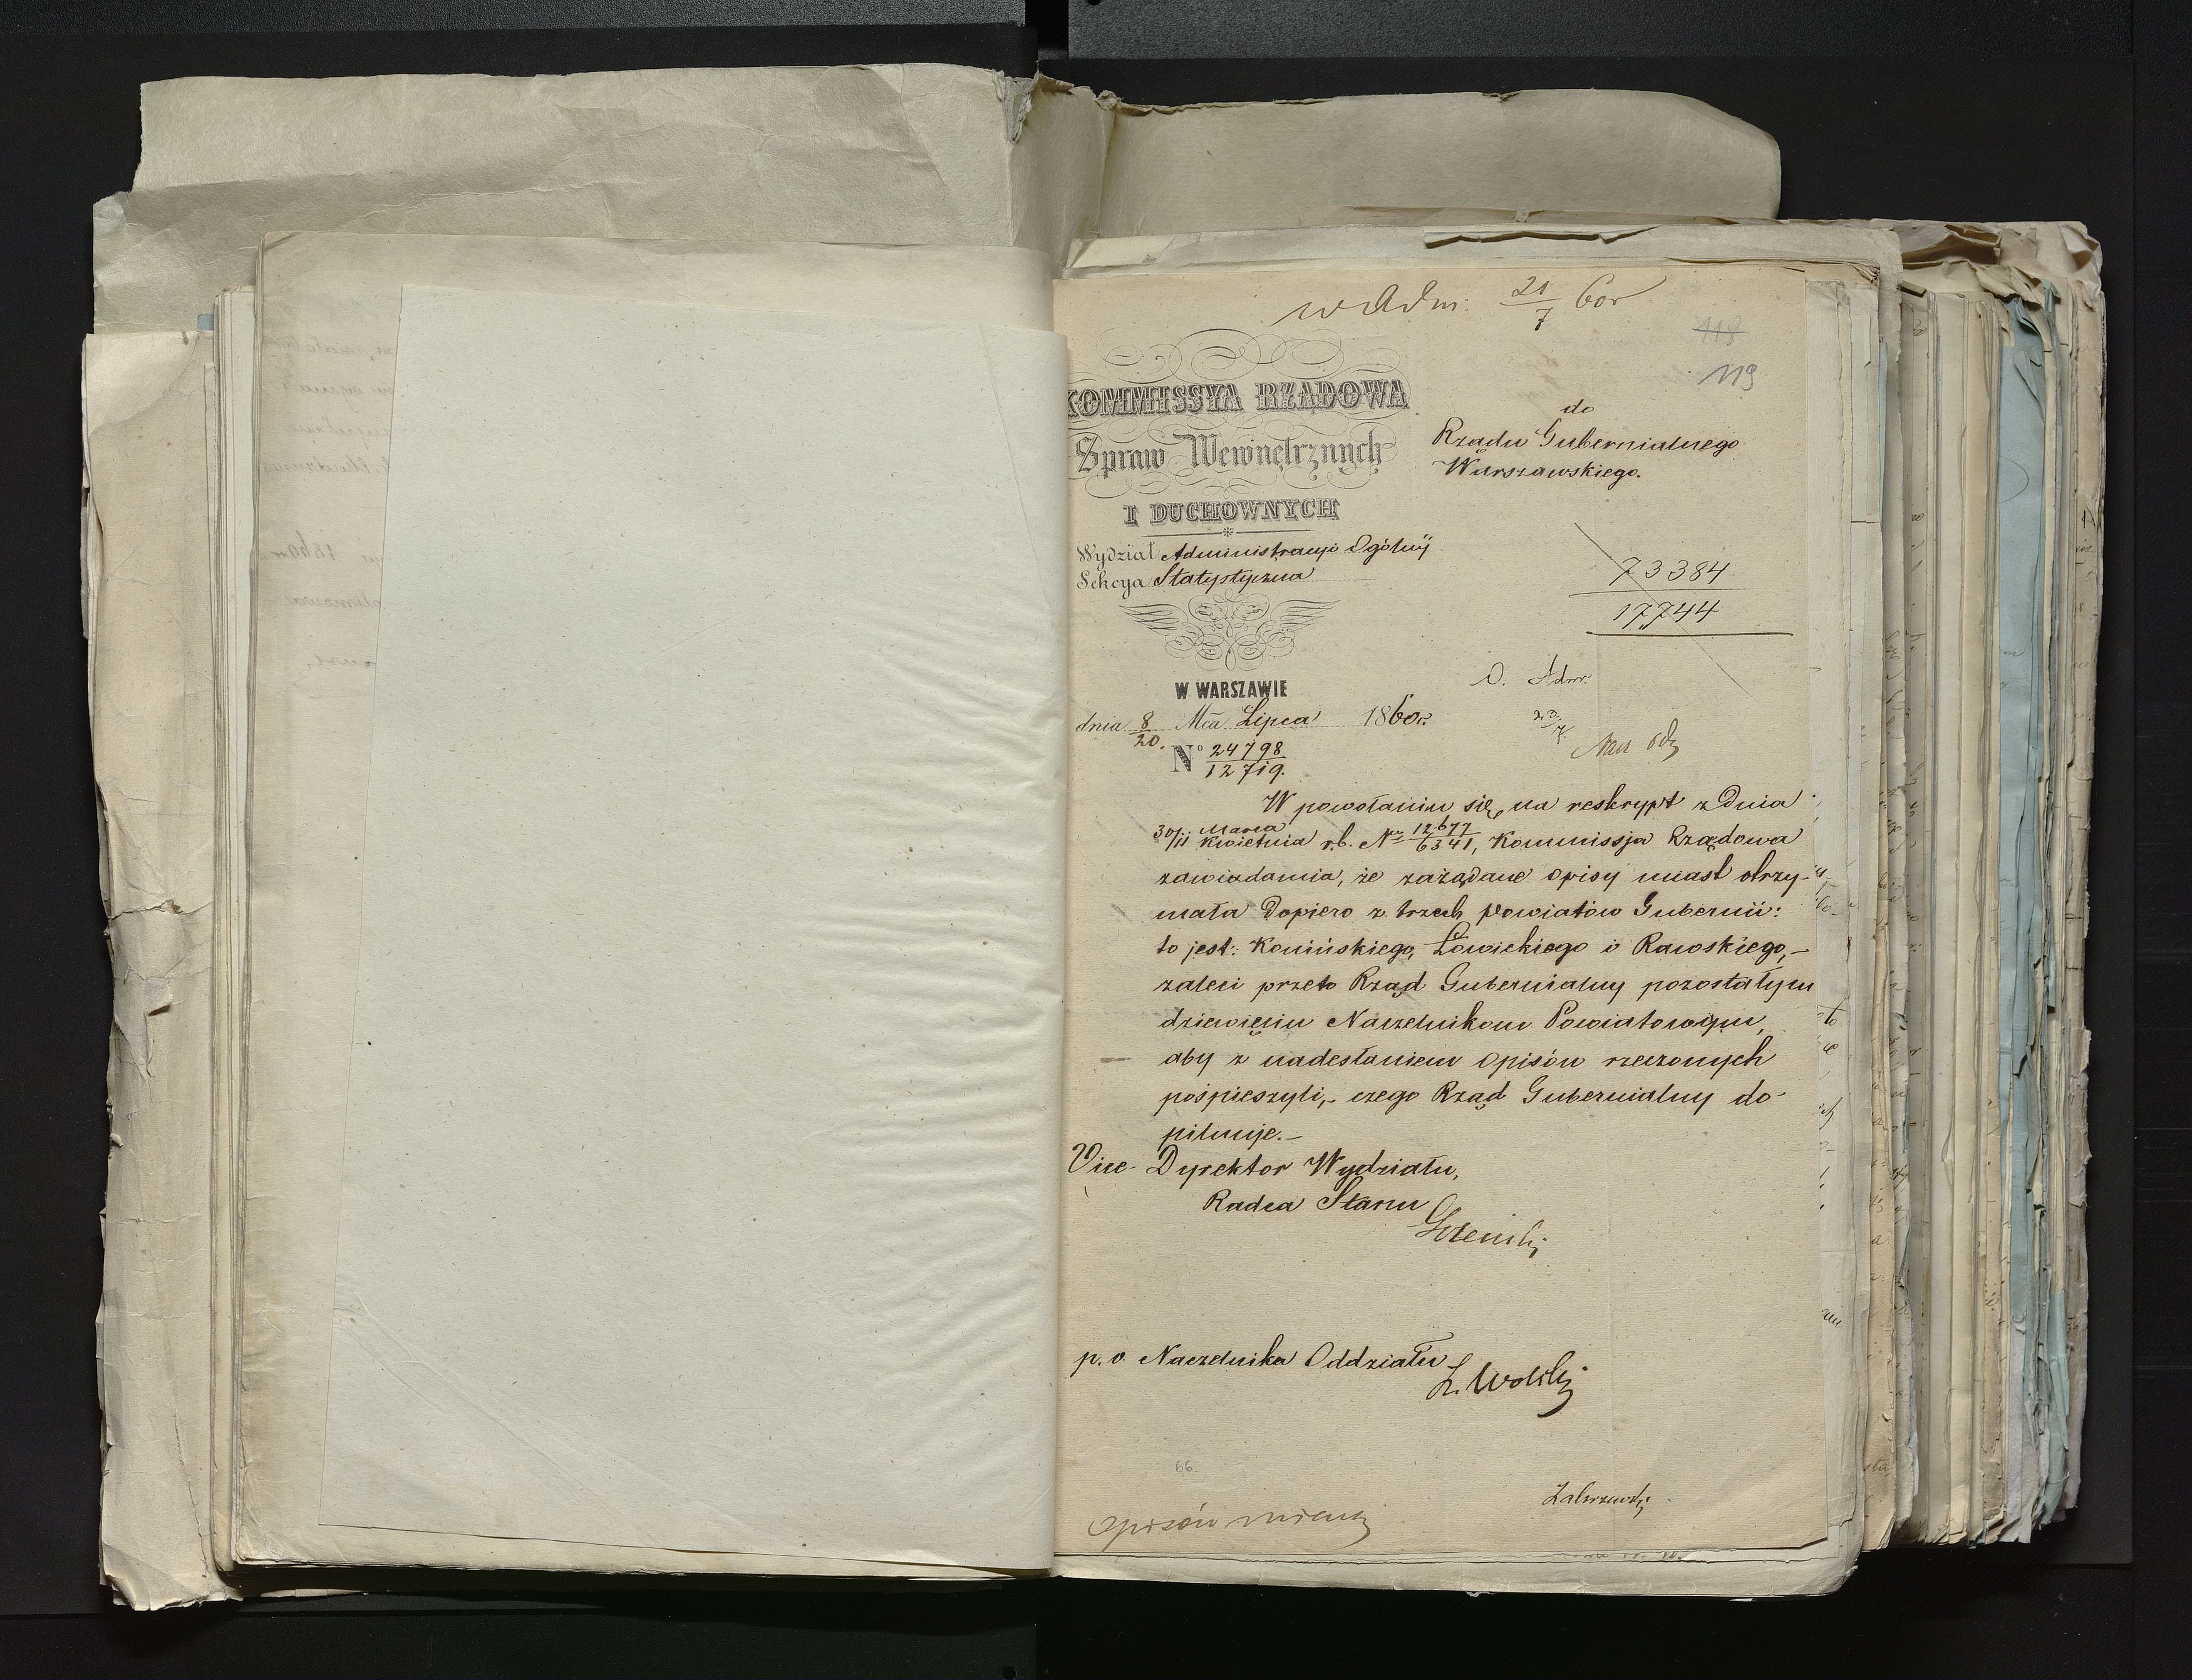 w Adm: 21/7 60r
118
119
KOMMISSYA RZĄDOWA
Spraw Wewnętrznych
I DUCHOWNYCH
Wydział Administracyi Ogólnéj
Sekcya Statystyczna
W WARSZAWIE
dnia 8/20. Mca Lipca 1860r.
No 24798/12719.
do
Rządu Gubernialnego
Warszawskiego.
73384
17744
O. Adm:
23/7
W powołaniu się na reskrypt z dnia
30/11 Marca/Kwietnia r.b. Nr 12677/6341, Kommissja Rządowa
zawiadamia, że zażądane opisy miast otrzy-
mała dopiero z trzech powiatów Gubernii:
to jest: Konińskiego, Łowickiego i Rawskiego,-
zaleci przeto Rząd Gubernialny pozostałym
dziewięciu Naczelnikom Powiatowym,
aby z nadesłaniem opisów rzeczonych
pośpieszyli,- czego Rząd Gubernialny do-
pilnuje.-
Vice-Dyrektor Wydziału,
Radca Stanu
p.o. Naczelnika Oddziału
L. Wolski
66
opisów